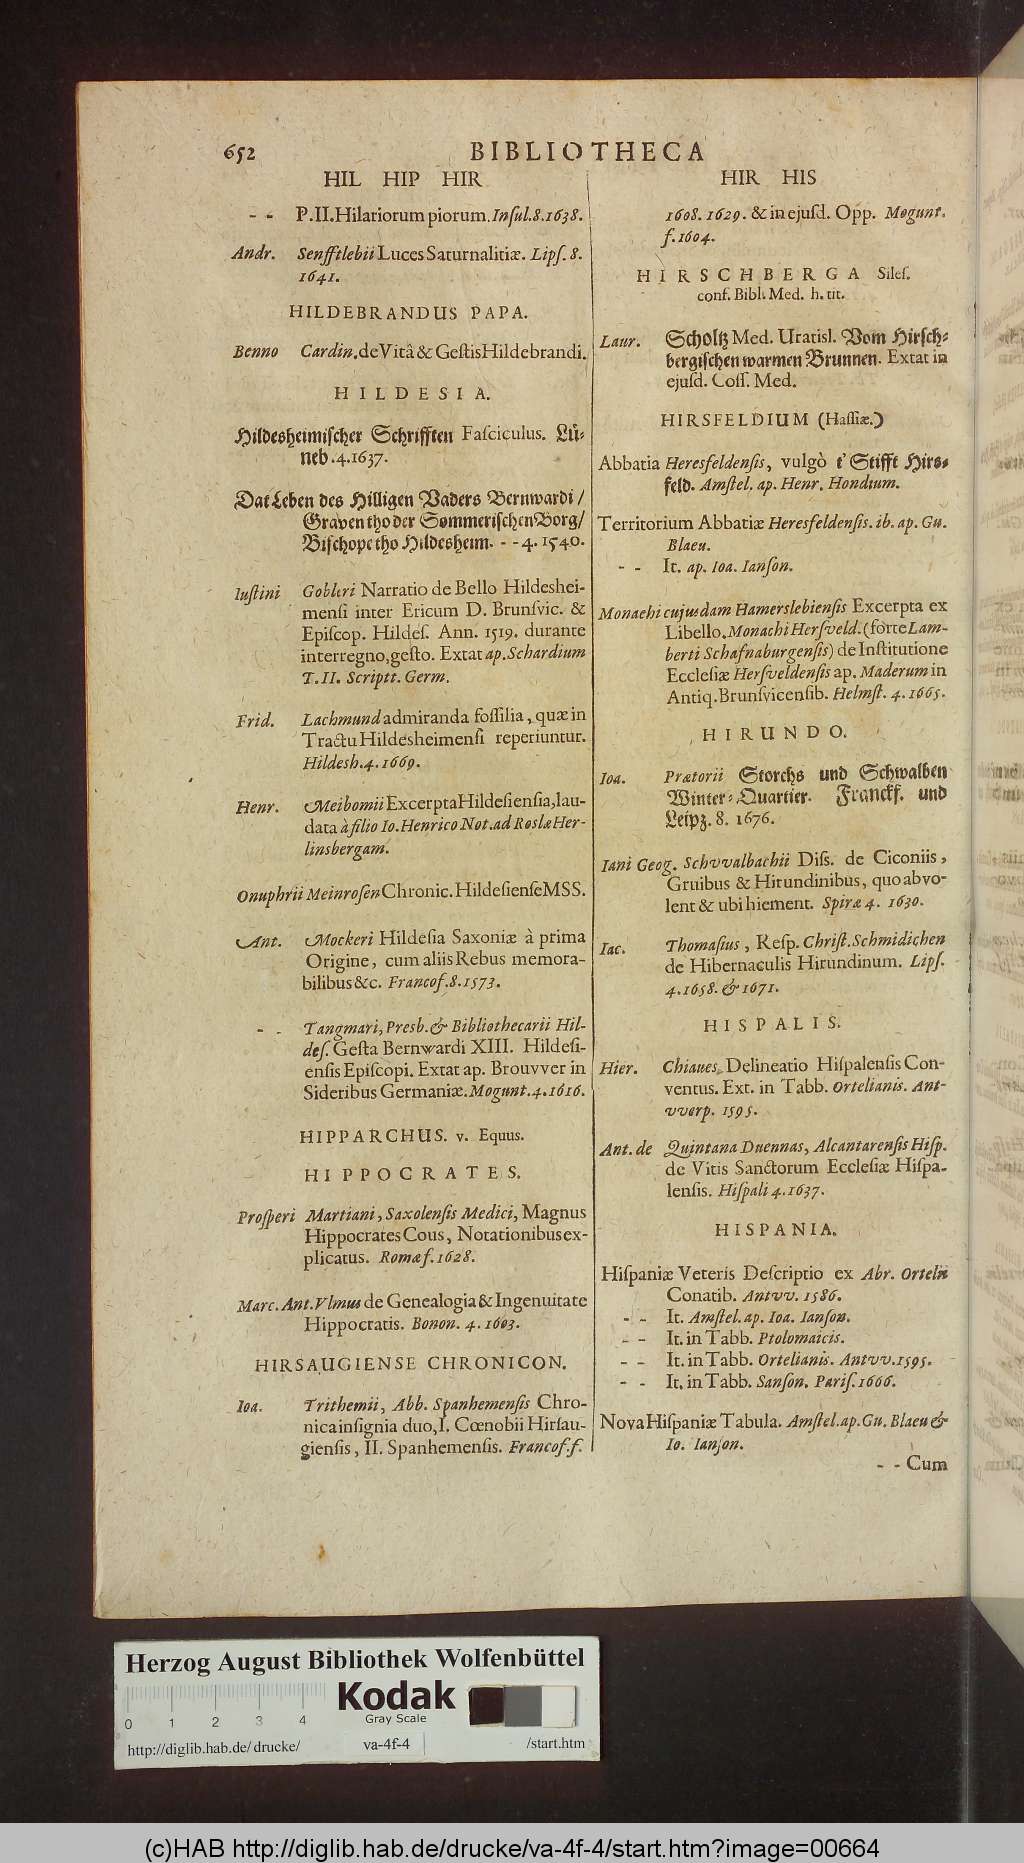 652
BIBLIOTHECA
HIL HIP HIR
- - P. II. Hilariorum piorum. Inſul. 8. 1638.
Andr. Senfftlebii Luces Saturnalitiæ. Lipſ. 8.
1641.
HILDEBRANDUS PAPA.
Benno Cardin. de Vitâ & Geſtis Hildebrandi.
HILDESIA.
Hildesheimiſcher Schrifften Faſciculus. Lü-
neb. 4. 1637.
Dat Leben des Hilligen Vaders Bernwardi /
Graven tho der Sommeriſchen Borg /
Biſchope tho Hildesheim. - - 4. 1540.
Iuſtini Gobleri Narratio de Bello Hildeshei-
menſi inter Ericum D. Brunſvic. &
Epiſcop. Hildeſ. Ann. 1519. durante
interregno, geſto. Extat ap. Schardium
T. II. Scriptt. Germ.
Frid. Lachmund admiranda foſſilia, quæ in
Tractu Hildesheimenſi reperiuntur.
Hildesh. 4. 1669.
Henr. Meibomii Excerpta Hildeſienſia, lau-
data à filio Io. Henrico Not. ad Roslæ Her-
linsbergam.
Onuphrii Meinroſen Chronic. Hildeſienſe MSS.
Ant. Mockeri Hildeſia Saxoniæ à prima
Origine, cum aliis Rebus memora-
bilibus &c. Francof. 8. 1573.
- - Tangmari, Presb. & Bibliothecarii Hil-
deſ. Geſta Bernwardi XIII. Hildeſi-
enſis Epiſcopi. Extat ap. Brouvver in
Sideribus Germaniæ. Mogunt. 4. 1616.
HIPPARCHUS. v. Equus.
HIPPOCRATES.
Proſperi Martiani, Saxolenſis Medici, Magnus
Hippocrates Cous, Notationibus ex-
plicatus. Romæ f. 1628.
Marc. Ant. Vlmus de Genealogia & Ingenuitate
Hippocratis. Bonon. 4. 1603.
HIRSAUGIENSE CHRONICON.
Ioa. Trithemii, Abb. Spanhemenſis Chro-
nica inſignia duo, I. Cœnobii Hirſau-
gienſis, II. Spanhemenſis. Francof. f.
HIR HIS
1608. 1629. & in ejuſd. Opp. Mogunt.
f. 1604.
HIRSCHBERGA Sileſ.
conf. Bibl. Med. h. tit.
Laur. Scholtz Med. Uratisl. Vom Hirſch-
bergiſchen warmen Brunnen. Extat in
ejuſd. Coſſ. Med.
HIRSFELDIUM (Haſſiæ.)
Abbatia Heresfeldenſis, vulgò t' Stifft Hirs-
feld. Amſtel. ap. Henr. Hondium.
Territorium Abbatiæ Heresfeldenſis. ib. ap. Gu.
Blaeu.
- - It. ap. Ioa. Ianſon.
Monachi cujusdam Hamerslebienſis Excerpta ex
Libello. Monachi Herſveld. (forte Lam-
berti Schafnaburgenſis) de Inſtitutione
Eccleſiæ Herſveldenſis ap. Maderum in
Antiq. Brunſvicenſib. Helmſt. 4. 1665.
HIRUNDO.
Ioa. Prætorii Storchs und Schwalben
Winter-Quartier. Franckf. und
Leipz. 8. 1676.
Iani Geog. Schvvalbachii Diſſ. de Ciconiis,
Gruibus & Hirundinibus, quo abvo-
lent & ubi hiement. Spiræ 4. 1630.
Iac. Thomaſius, Reſp. Chriſt. Schmidichen
de Hibernaculis Hirundinum. Lipſ.
4. 1658. & 1671.
HISPALIS.
Hier. Chiaues Delineatio Hiſpalenſis Con-
ventus. Ext. in Tabb. Ortelianis. Ant-
vverp. 1595.
Ant. de Quintana Duennas, Alcantarenſis Hiſp.
de Vitis Sanctorum Eccleſiæ Hiſpa-
lenſis. Hiſpali 4. 1637.
HISPANIA.
Hiſpaniæ Veteris Deſcriptio ex Abr. Ortelii
Conatib. Antvv. 1586.
- - It. Amſtel. ap. Ioa. Ianſon.
- - It. in Tabb. Ptolomaicis.
- - It. in Tabb. Ortelianis. Antvv. 1595.
- - It. in Tabb. Sanſon. Pariſ. 1666.
Nova Hiſpaniæ Tabula. Amſtel. ap. Gu. Blaeu &
Io. Ianſon.
- - Cum
Herzog August Bibliothek Wolfenbüttel
0 1 2 3 4
Kodak
Gray Scale
http://diglib.hab.de/drucke/ va-4f-4 /start.htm
(c)HAB http://diglib.hab.de/drucke/va-4f-4/start.htm?image=00664